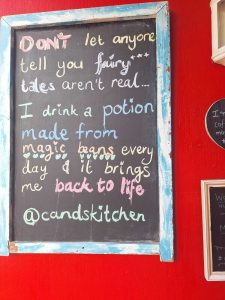 DON'T let anyone
tell you fairy***
tales aren't real...
I drink a potion
made from
magic beans every
day & it brings
me back to life
@candskitchen